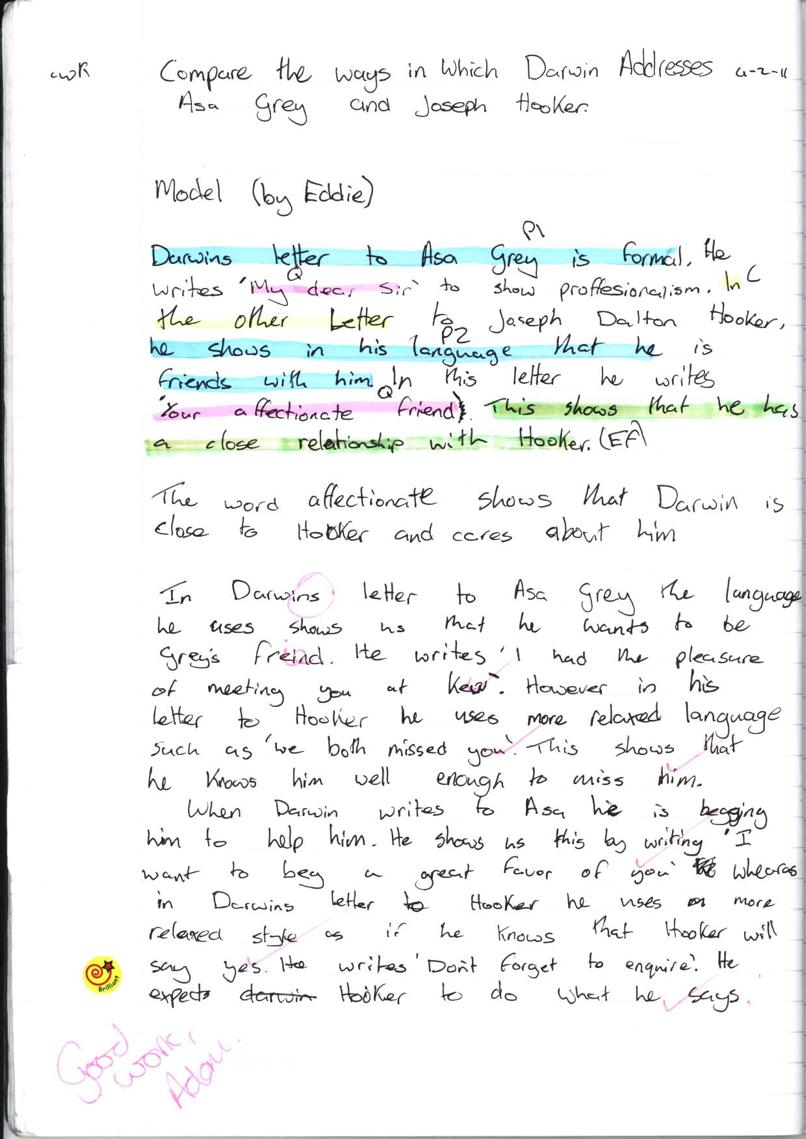 cwR Compare the ways in which Darwin Addresses 4-2-11
Asa Grey and Joseph Hooker.
Model (by Eddie)
P1
Darwins letter to Asa Grey is formal. He
Q C
writes 'My dear Sir' to show proffesionalism. In
the other Letter to Joseph Dalton Hooker,
P2
he shows in his language that he is
friends with him. In this letter he writes
Q
'Your affectionate friend'. This shows that he has
a close relationship with Hooker. (EF)
The word affectionate shows that Darwin is
close to Hooker and cares about him
In Darwins letter to Asa Grey the language
he uses shows us that he wants to be
Grey's freind. He writes 'I had the pleasure
of meeting you at Kew'. However in his
letter to Hooker he uses more relaxed language
such as 'we both missed you'. This shows that
he knows him well enough to miss him.
When Darwin writes to Asa he is begging
him to help him. He shows us this by writing 'I
want to beg a great favor of you' whearas
in Darwins letter to Hooker he uses a more
relaxed style as if he knows that Hooker will
say yes. He writes 'Don't forget to enquire'. He
expects darwin Hooker to do what he says.
Brilliant
Good
work,
Adam.